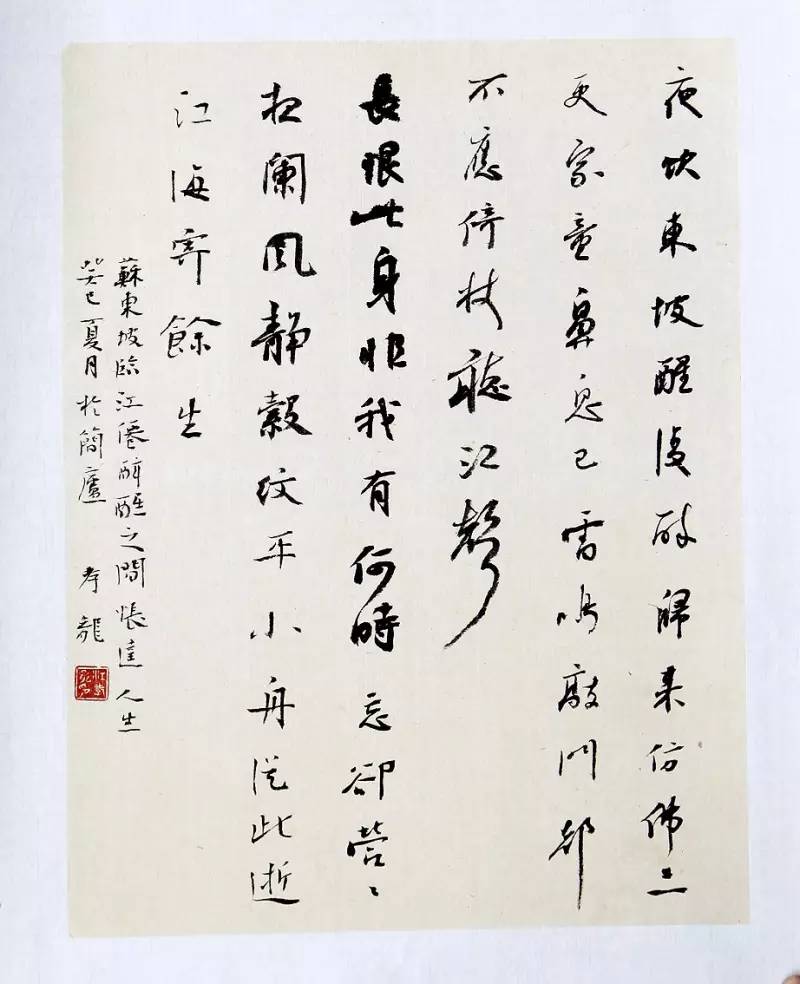 夜飲東坡醒復醉歸来仿佛三
更家童鼻息已雷鳴敲門都
不應倚杖聽江聲
長恨此身非我有何時忘卻營〻
夜闌風静縠紋平小舟從此逝
江海寄餘生
蘇東坡臨江僊醉醒之間悵達人生
癸巳夏月於簡廬 孝龍